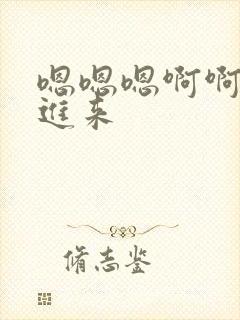 嗯嗯嗯啊啊
進来
脩志鉴